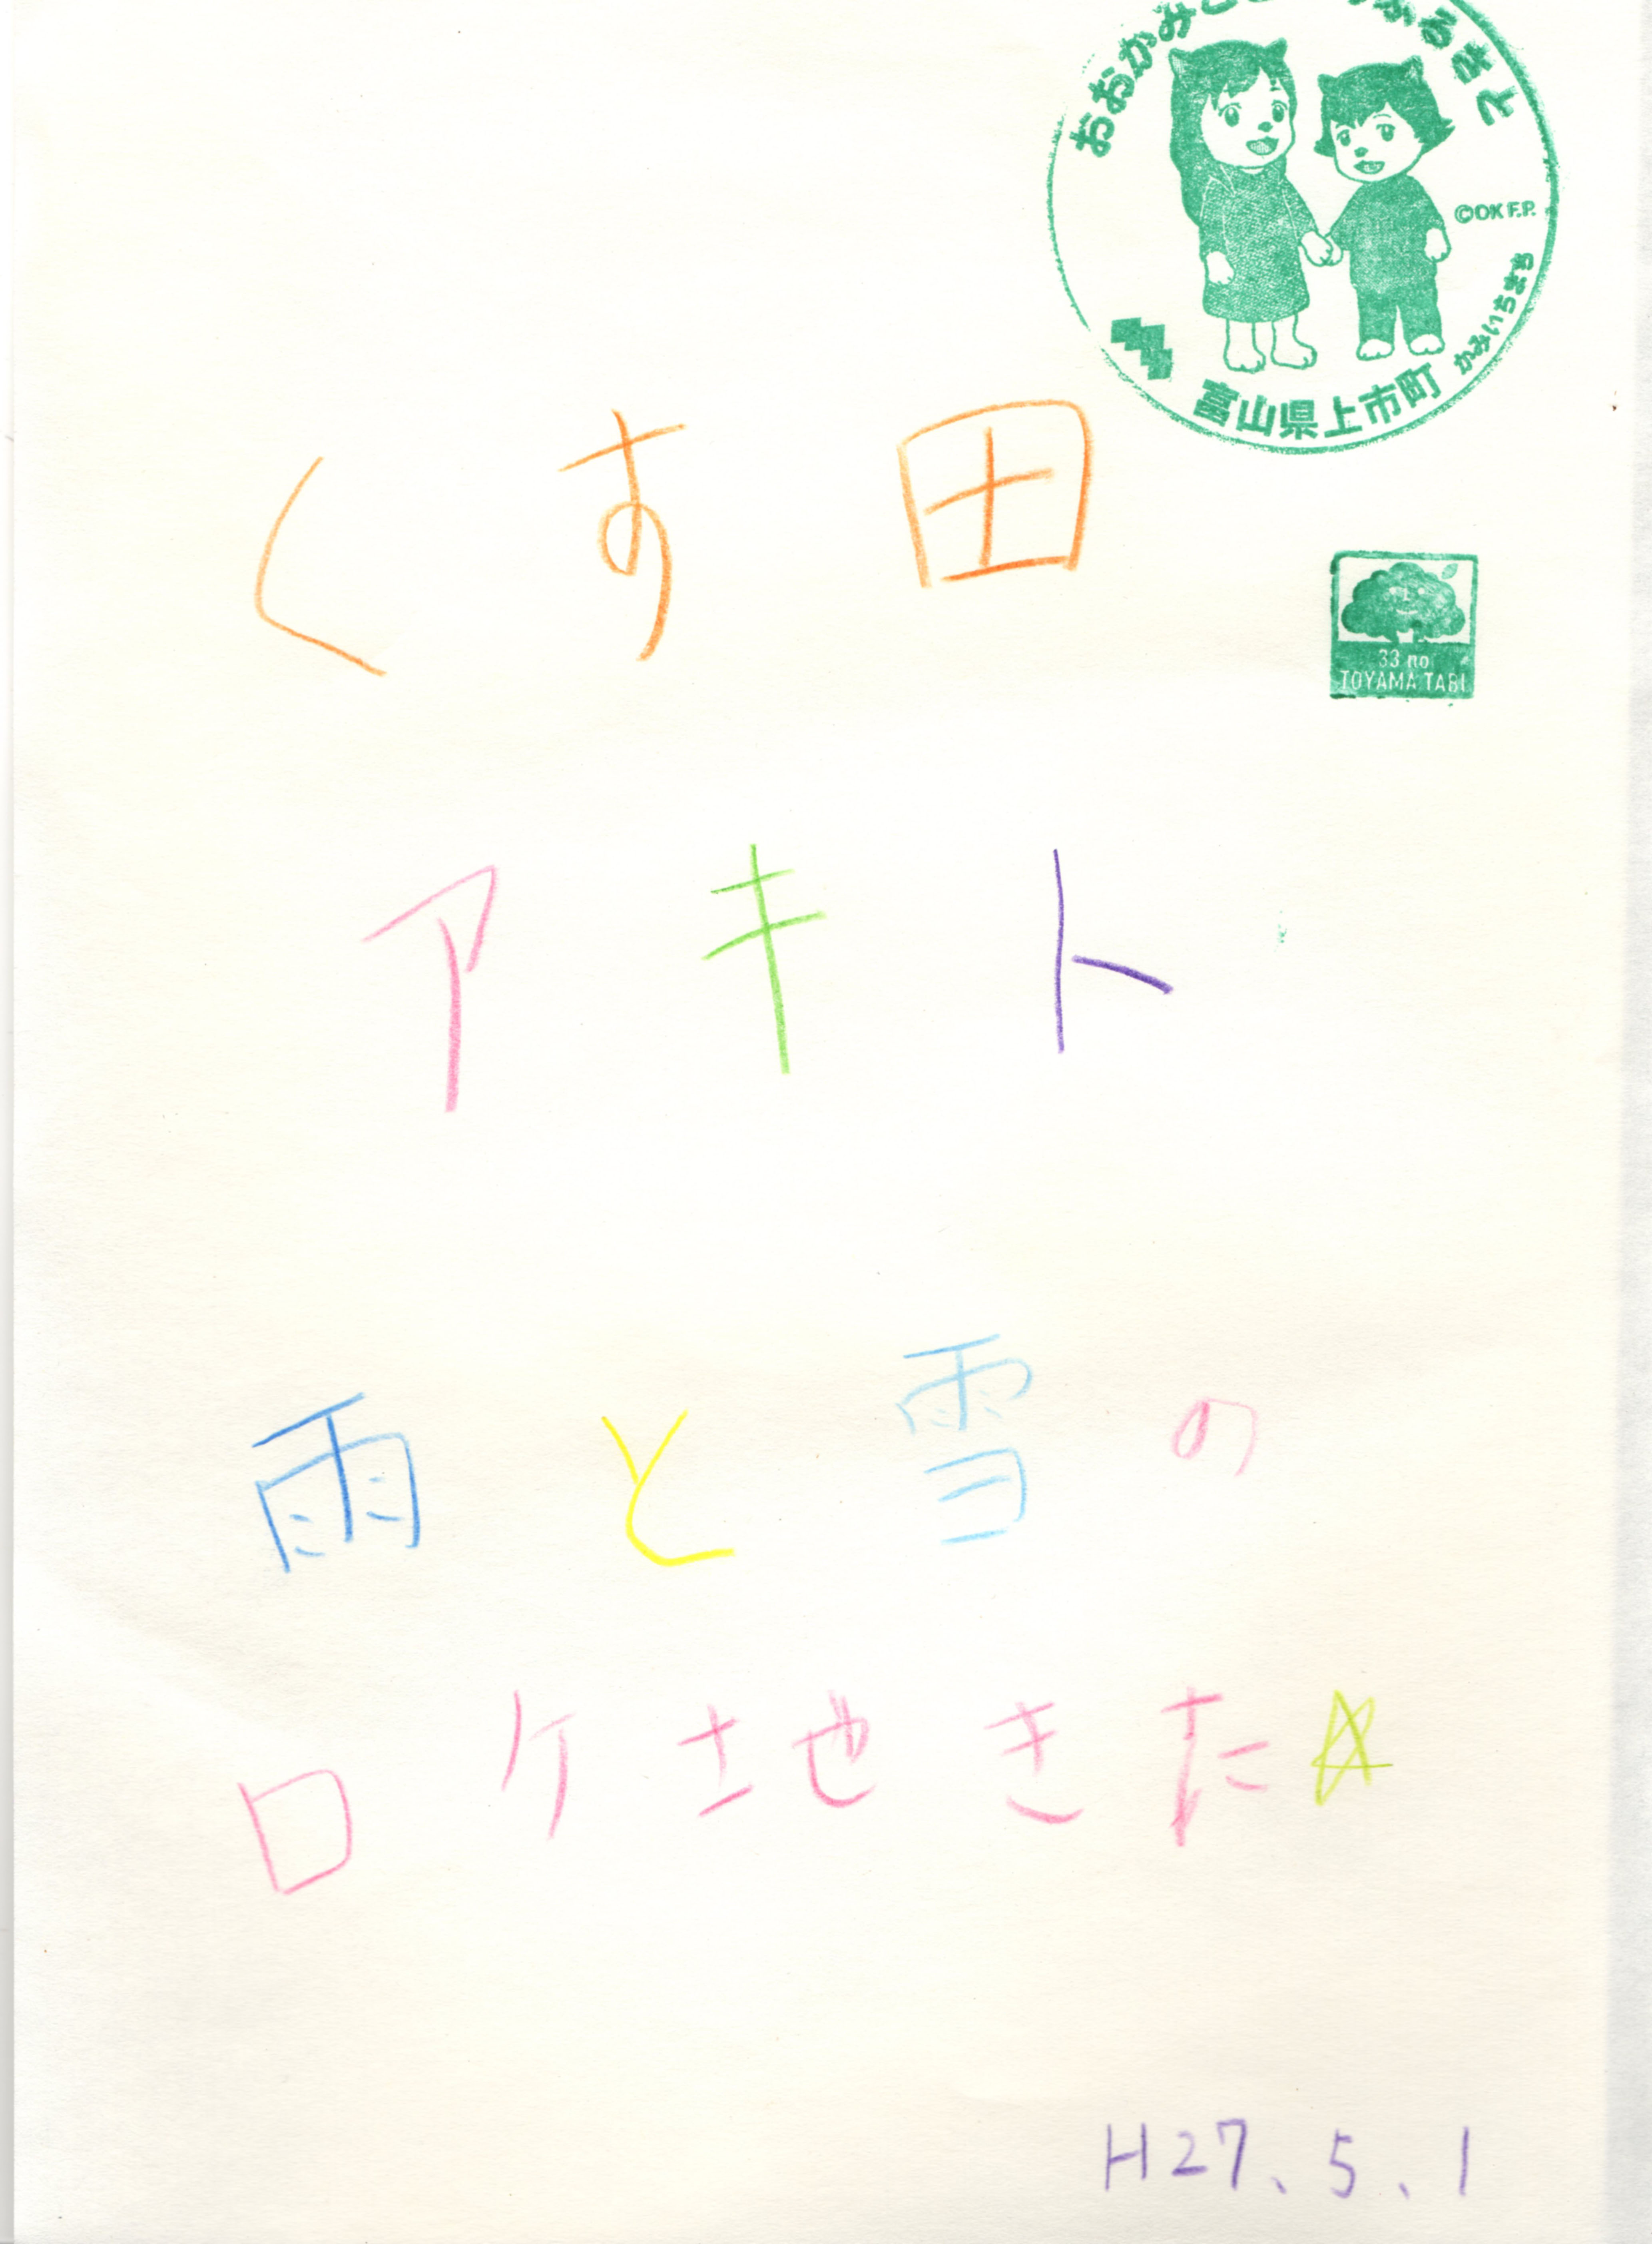 おおかみこ ふるさと
©OK F.P.
かみいちまち
富山県上市町
くす田
33 no
TOYAMA TABI
アキト
雨と雪の
ロケ地きた☆
H27、5、1